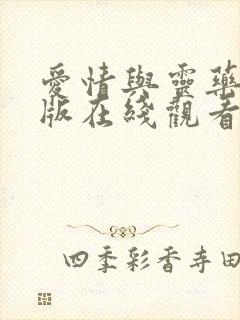 愛情與靈藥
版在綫觀看
四季彩香寺田